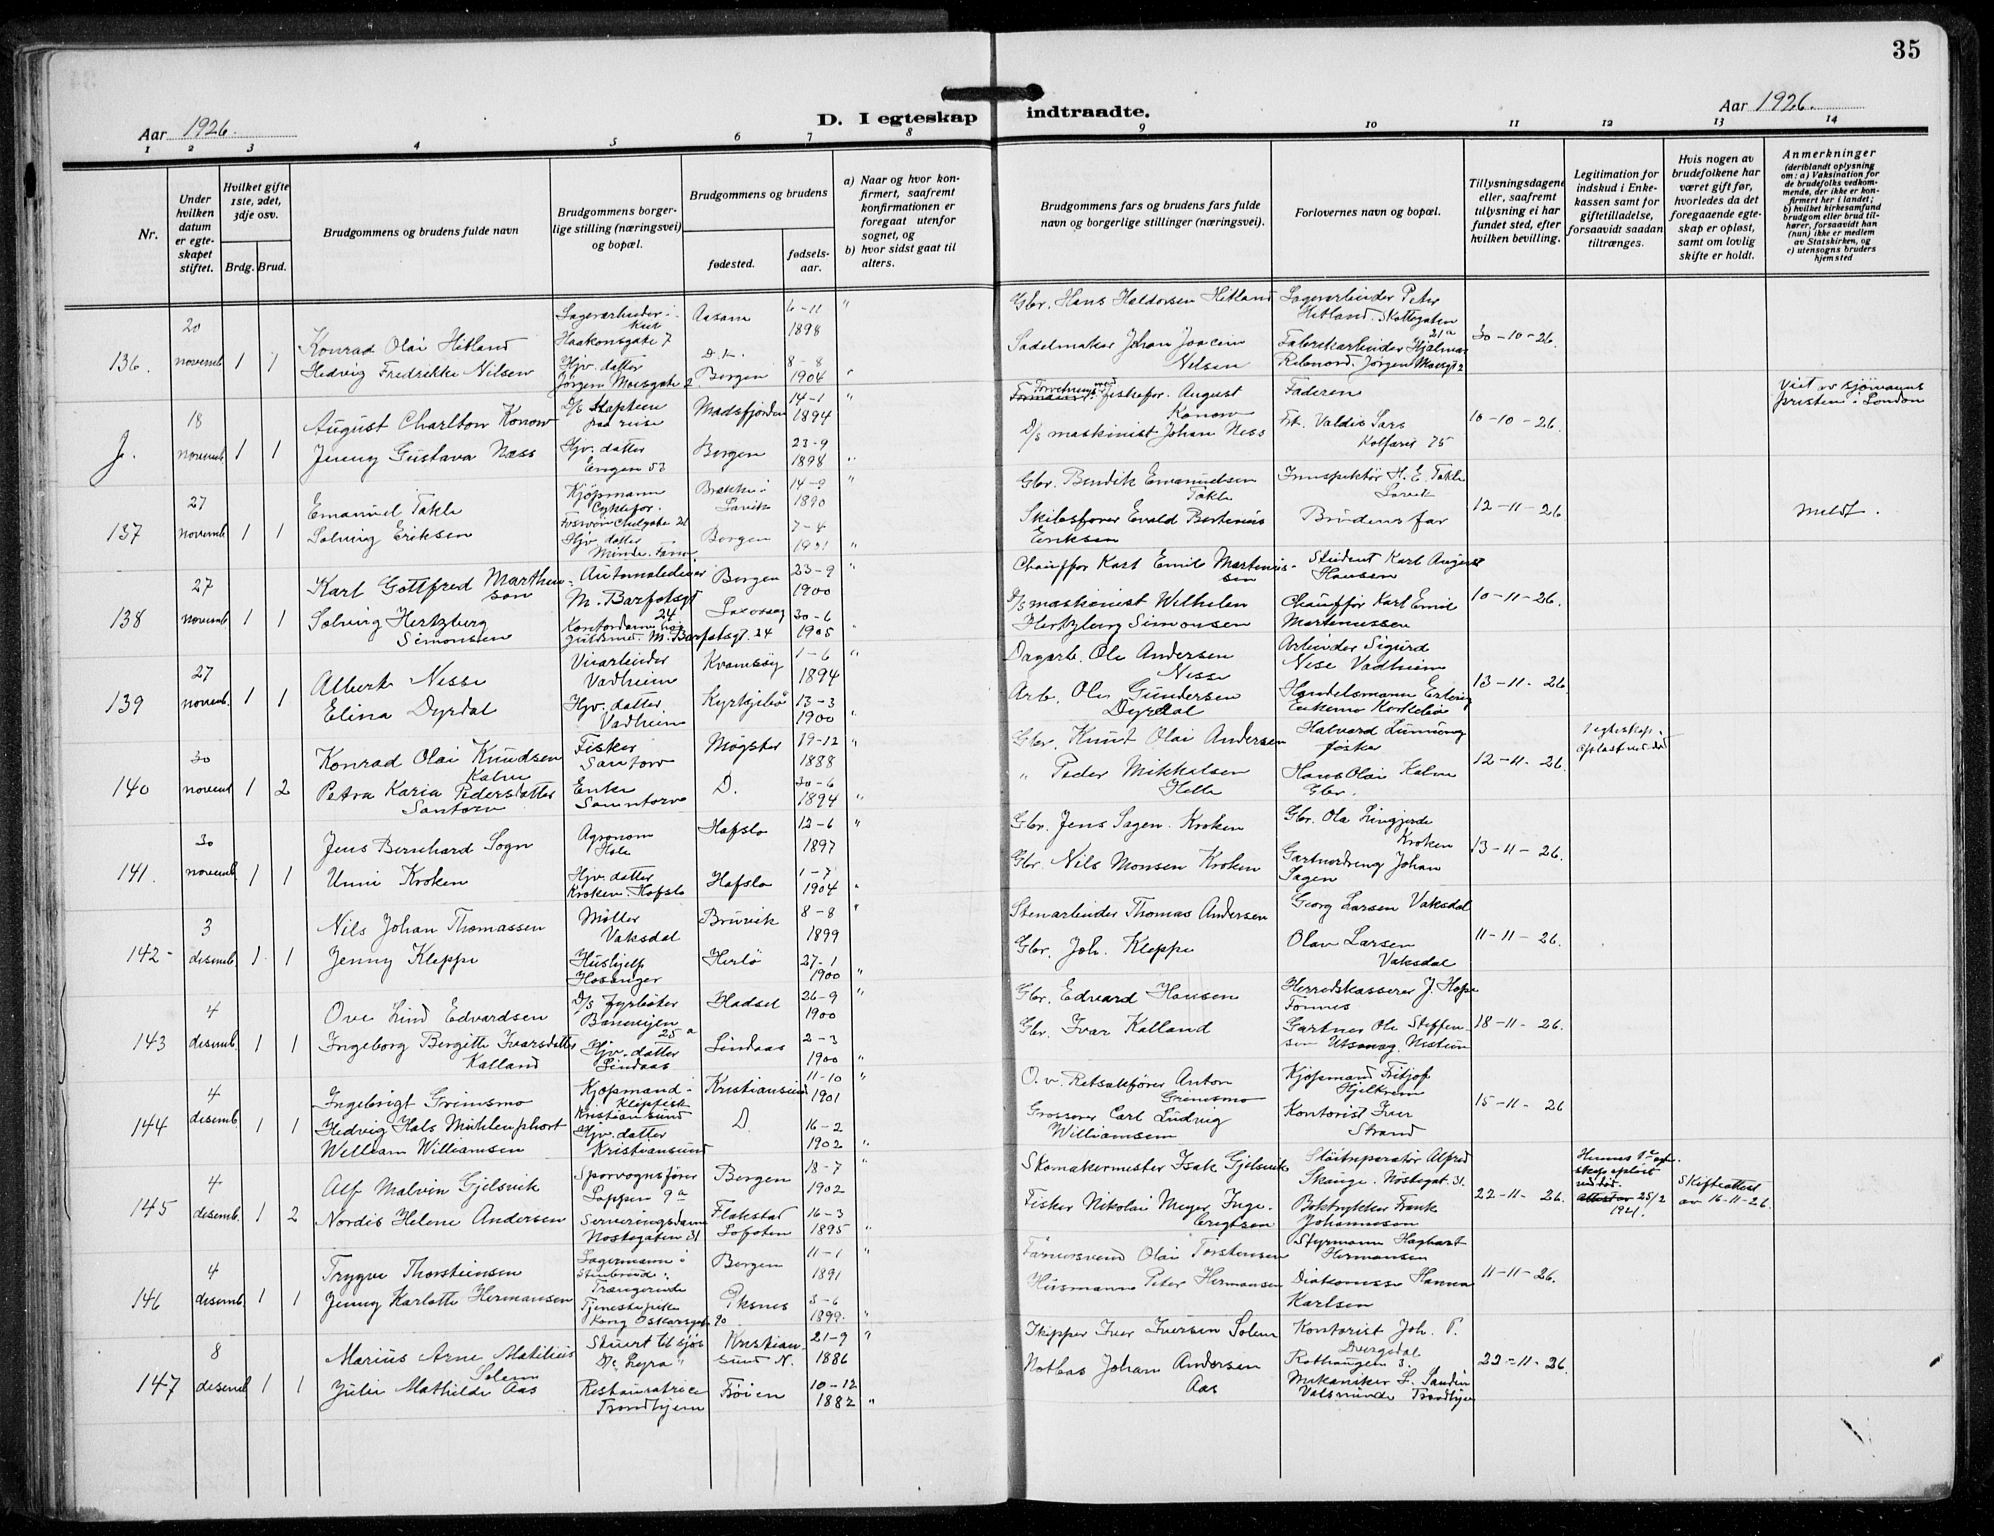 35
Aar 1926.
D. I egteskap indtraadte.
Aar 1926.
1 2 3 4 5 6 7 8 9 10 11 12 13 14
Nr.
Under hvilken datum er egteskapet stiftet.
Hvilket gifte 1ste, 2det, 3dje osv.
Brdg. Brud.
Brudgommens og brudens fulde navn
Brudgommens borgerlige stilling (næringsvei) og bopæl.
Brudgommens og brudens
fødested.
fødselsaar.
a) Naar og hvor konfirmert, saafremt konfirmationen er foregaat utenfor sognet, og
b) hvor sidst gaat til alters.
Brudgommens fars og brudens fars fulde navn og borgerlige stillinger (næringsvei).
Forlovernes navn og bopæl.
Tillysningsdagene eller, saafremt tillysning ei har fundet sted, efter hvilken bevilling.
Legitimation for indskud i Enkekassen samt for giftetilladelse, forsaavidt saadan tiltrænges.
Hvis nogen av brudefolkene har været gift før, hvorledes da det foregaaende egteskap er opløst, samt om lovlig skifte er holdt.
Anmerkninger
(deriblandt oplysning om: a) Vaksination for de brudefolks vedkommende, der ikke er konfirmert her i landet; b) hvilket kirkesamfund brudgom eller brud tilhører, forsaavidt han (hun) ikke er medlem av Statskirken, og c) utensogns bruders hjemsted
136. 20 novemb. 1 1
Konrad Olai Hitland
Haakonsgate 7
6-11 1898 "
Gbr. Hans Haldorsen Hitland
Lagerarbeider Peter Hitland. Skottegaten 21a
30-10-26.
Hedvig Fredrikke Nilsen
Hjv. datter
Jørgen Moesgate 2
Bergen
8-8 1904 "
Sadelmaker Johan Joacim Nilsen
18 novemb. 1 1
August Charlton Konow
D/s Kaptein paa reise
14-1 1894 "
August Konow
Faderen
10-10-26.
Viet av sjømannspresten i London
Jenny Gustava Næss
Hjv. datter
Engen 53
Bergen
23-9 1898 "
D/s maskinist Johan Ness
Frk. Valdis Sars
Kalfaret 75
137 27 novemb. 1 1
Emanuel Takle
Kjøpmann
14-9 1890 "
Gbr. Bendik Emanuelsen Takle
H. E. Takle
12-11-26
meldt.
Solveig Eriksen
Hjv. datter
Bergen
7-4 1901 "
Skibsfører Evald Bertinius Eriksen
Brudens far
138 27 novemb. 1 1
Karl Gottfred Marthinsson
M. Barfotsgt 24
Bergen
23-9 1900 "
Chauffør Karl Emil Martinussen
Student Karl August Hansen
10-11-26.
Solveig Hertzberg Simonsen
M. Barfotsgt. 24
30-6 1905 "
D/s maskinist Wilhelm Hertzberg Simonsen
Chauffør Karl Emil Martinussen
139 27 novemb. 1 1
Albert Nesse
Vadheim
Kvamsøy
1-6 1894 "
Dagarb. Ole Andersen Nesse
Arbeider Sigurd Nese Vadheim
13-11-26.
Elina Dyrdal
Hjv. datter
Vadheim
Kyrkjebø
13-3 1900 "
Arb. Ole Gundersen Dyrdal
Handelsmann Erling
140 30 novemb 1 2
Konrad Olai Knudsen Kalve
Fisker
Møgster
19-12 1888 "
Gbr. Knut Olai Andersen
Halvard Lunnöng fisker
12-11-26.
1 egteskap opløst ved död
Petra Karia Pedersdatter Santorv
Enke
D.
30-6 1894 "
" Peder Mikkelsen Helle
Hans Olai Kalve Gbr.
141. 30 novemb. 1 1
Jens Bernhard Sogn
Agronom
Hafslo
12-6 1897 "
Gbr. Jens Sagen. Kroken
Gbr. Ola Lingjerde Kroken
13-11-26.
Unni Kroken
Hjv. datter
Kroken Hafslo
Hafslo
1-7 1904 "
Gbr Nils Monsen Kroken
Gartnerdreng Johan Sagen
142- 3 desemb. 1 1
Nils Johan Thomassen
Møller
Vaksdal
Bruvik
8-8 1899 "
Stenarbeider Thomas Andersen
Georg Larsen Vaksdal
11-11-26.
Jenny Kleppe
Hushjelp
Hosanger
Herlø
27-1 1900 "
Gbr. Joh. Kleppe
Olav Larsen Vaksdal
143 4 desemb. 1 1
Ove Lind Edvardsen
D/s fyrbøter
Baneveien 25a
Hadsel
26-9 1900 "
Gbr. Edvard Hansen
Herredskasserer J. Hope Fonnes
18-11-26.
Ingeborg Bergitte Ivarsdatter Kalland
Hjv. datter
Lindaas
Lindaas
2-3 1900 "
Gbr. Ivar Kalland
Gartner Ole Steffensen
144 4 desemb. 1 1
Ingebrigt Grimsmo
Kjøpmand i Klipfisk
Kristiansund
Kristiansund
11-10 1901 "
O.r. Retsakfører Anton Grimsmo
Kjøpmand Fritjof Hjelkrem
15-11-26
Hedvig Hals Mühlenphort William Williamsen
Hjv. datter
Kristiansund
D.
16-2 1902 "
Grosserer Carl Ludvig Williamsen
Kontorist Iver Strand
145 4 desemb. 1 2
Alf Malvin Gjelsvik
Sporvognsfører
Lappen 9a
Bergen
18-7 1902 "
Skomakermester Isak Gjelsvik
Alfred Skauge. Nöstegat. 31.
22-11-26.
25/2 1921.
Skifteattest av 16-11-26.
Nordis Helene Andersen
Serveringsdame
Nöstegaten 31
Flakstad Lofoten
16-3 1895 "
Fisker Nikolai Meyer Ingebrigtsen
Boktrykker Frank Johannesen
146 4 desemb. 1 1
Trygve Thorsteinsen
Bergen
11-1 1891 "
Farversvend Olai Torstensen
Styrmann Hagbart Hermansen
11-11-26.
Jenny Karlotte Hermansen
Tjenestepike
Kong Oskarsgt 90
3-6 1899 "
Husmann Peter Hermansen
Diakonisse Hanna Karlsen
147 8 desemb 1 1
Marius Arne Matilius Solem
Stuert til sjøs
D/s "Lyra"
Kristiansund N.
21-9 1886 "
Skipper Iver Iversen Solem
Kontorist Joh. P. Dvergsdal
Rothaugen 3.
22-11-26.
Julie Mathilde Aas
Restauratrice
Trondhjem
Frøien
10-12 1882 "
Notbas Johan Andersen Aas
Mekaniker L. Sandin
Trondhjem